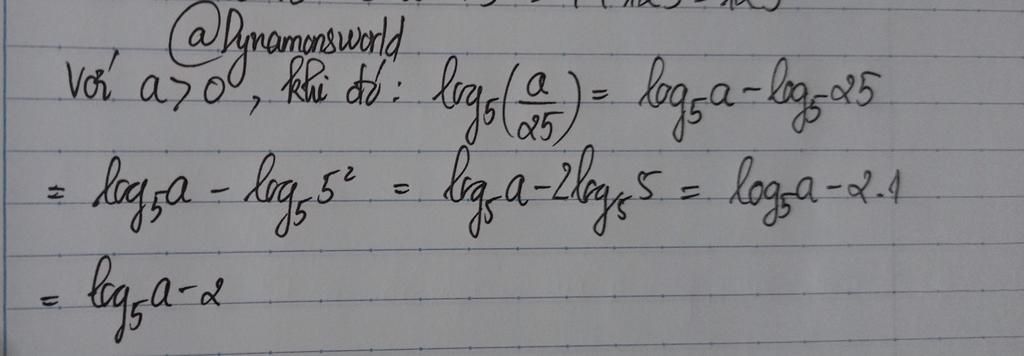 @Dynamonsworld
Với a > 0, khi đó: log₅(a/25) = log₅a - log₅25
= log₅a - log₅5² = log₅a - 2log₅5 = log₅a - 2.1
= log₅a - 2